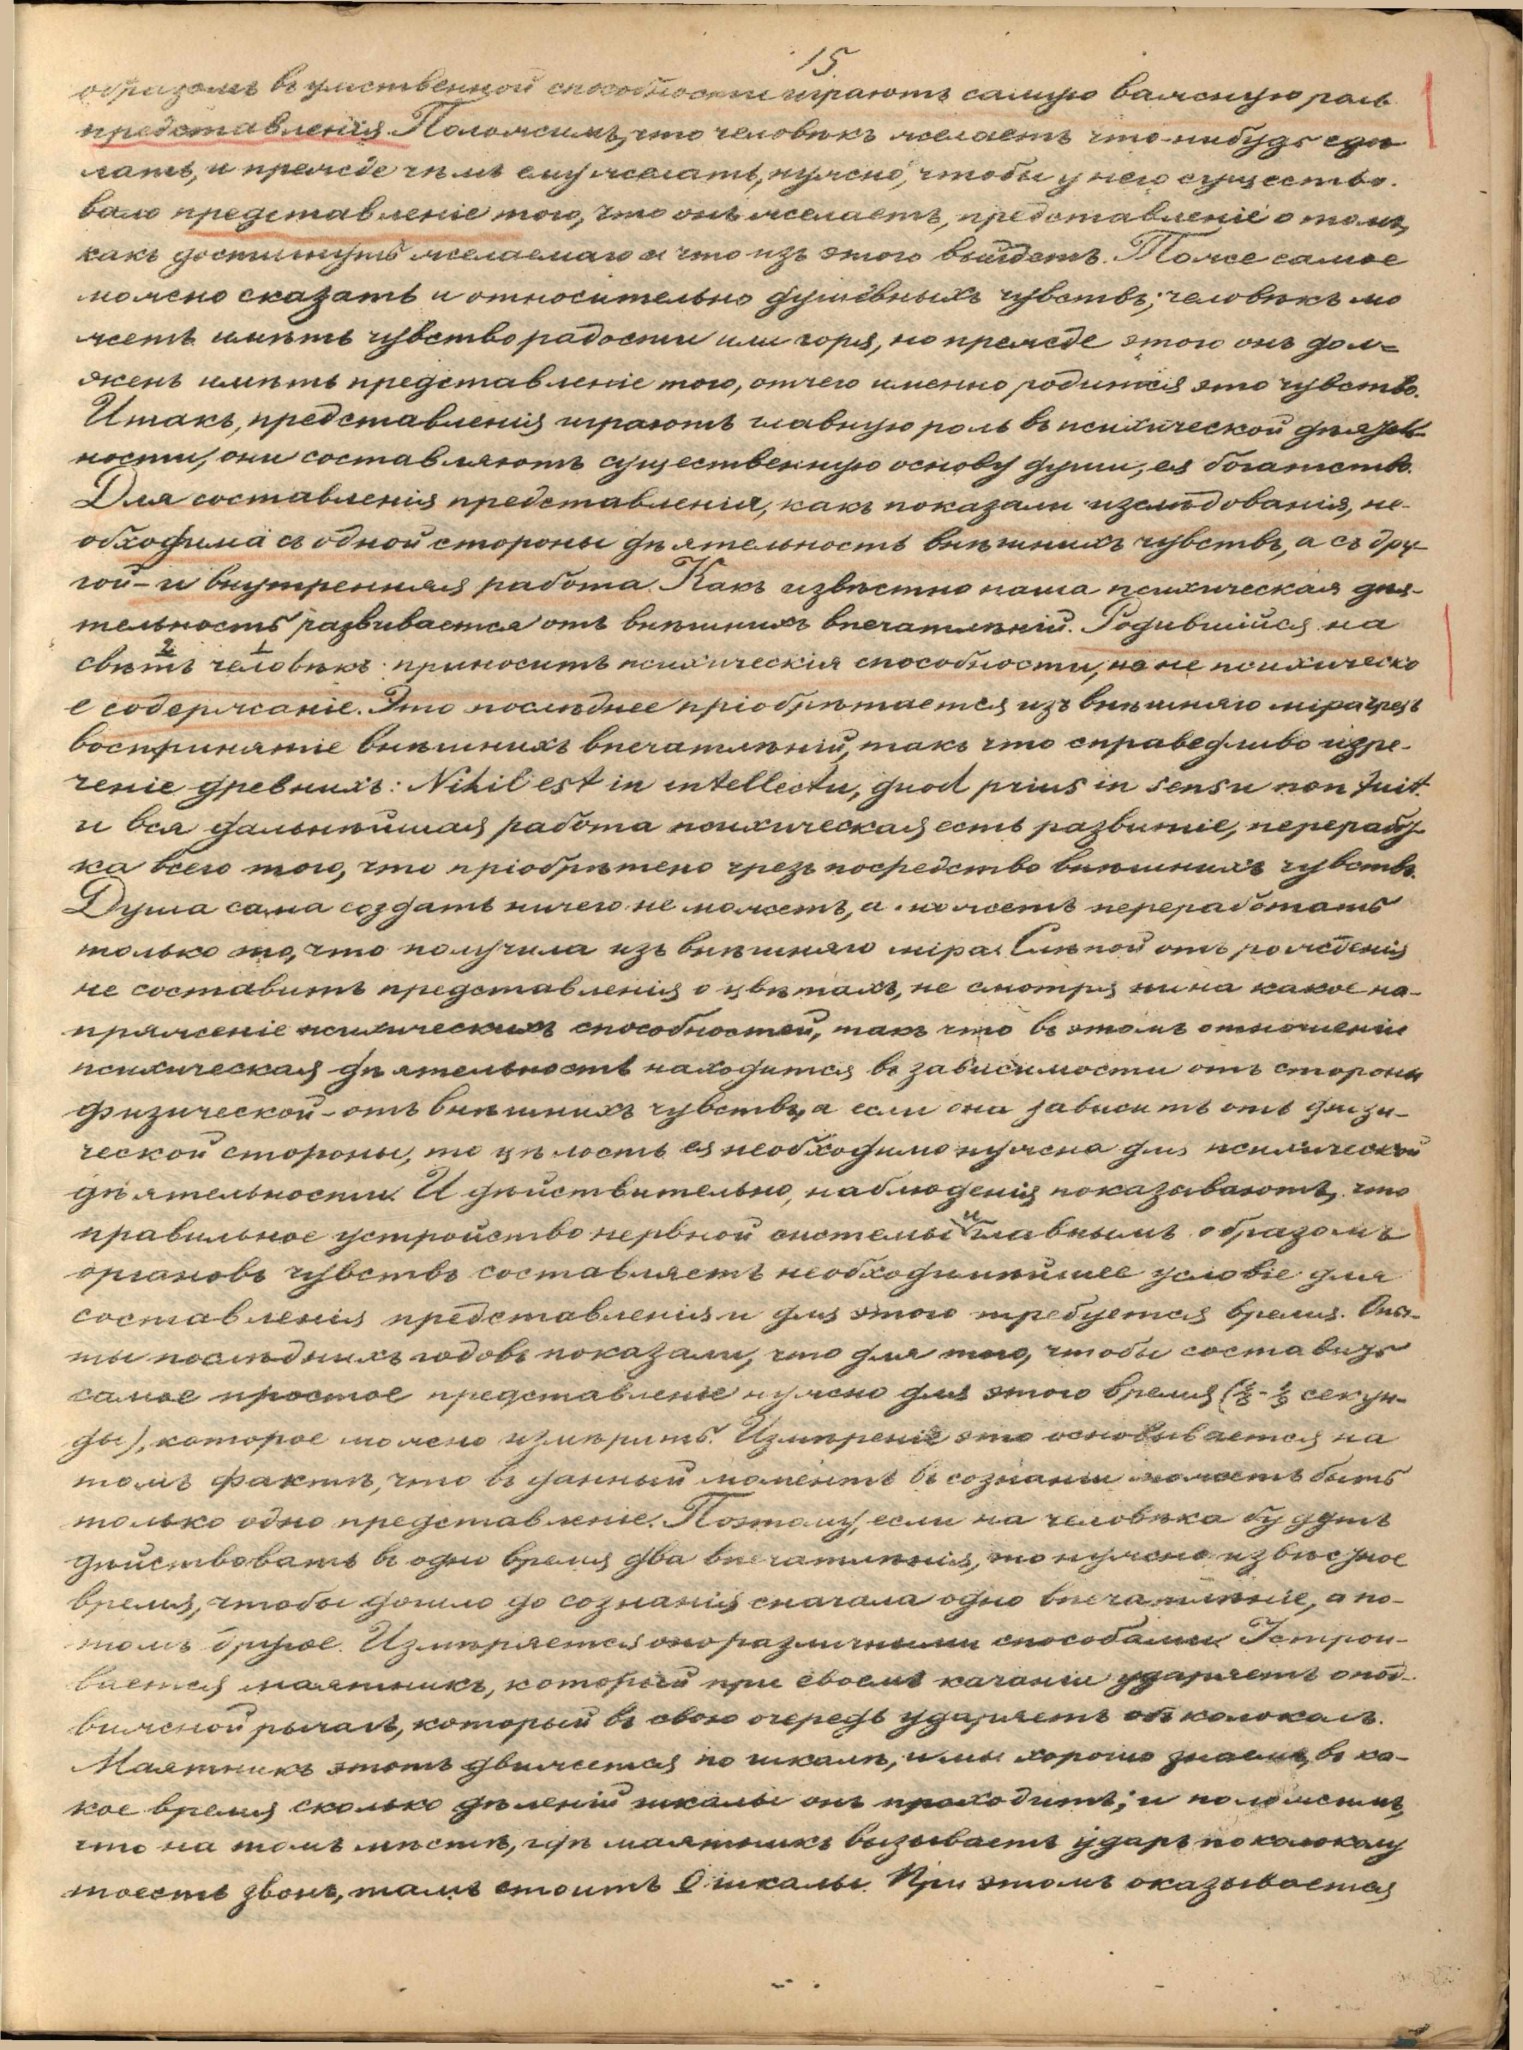 15.
образомъ въ умственной способности играютъ самую важную роль
представленія. Положимъ, что человѣкъ желаетъ что-нибудь сдѣ
лать, и прежде чѣмъ ему желать, нужно, чтобы у него существо-
вало представленіе того, что онъ желаетъ, представленіе о томъ,
какъ достигнуть желаемаго и что изъ этого выйдетъ. Тоже самое
можно сказать и относительно душевныхъ чувствъ; человѣкъ мо
жетъ имѣть чувство радости или горя, но прежде этого онъ дол=
женъ имѣть представленіе того, отчего именно родится это чувство.
Итакъ, представленія играютъ главную роль въ психической дѣятель
ности, они составляютъ существенную основу души, ея богатство.
Для составленія представленія, какъ показали изслѣдованія, не-
обходима съ одной стороны дѣятельность внѣшнихъ чувствъ, а съ дру-
гой – и внутренняя работа. Какъ извѣстно наша психическая дѣя-
тельность развивается отъ внѣшнихъ впечатлѣній. Родившійся на
свѣтъ человѣкъ приноситъ психическія способности, но не психическо
е содержаніе. Это послѣднее пріобрѣтается изъ внѣшняго міра чрезъ
воспринятіе внѣшнихъ впечатлѣній, такъ что справедливо изре-
ченіе древнихъ: Nihil est in intellectu, quod prius in sensu non fuit.
и вся дальнѣйшая работа психическая есть развитіе, переработ
ка всего того, что пріобрѣтено чрезъ посредство внѣшнихъ чувствъ.
Душа сама создать ничего не можетъ, а можетъ переработать
только то, что получила изъ внѣшняго міра. Слѣпой отъ рожденія
не составитъ представленія о цвѣтахъ, не смотря ни на какое на-
пряженіе психическихъ способностей, такъ что въ этомъ отношеніи
психическая дѣятельность находится въ зависимости отъ стороны
физической – отъ внѣшнихъ чувствъ, а если она зависитъ отъ физи-
ческой стороны, то цѣлость ея необходимо нужна для психической
дѣятельности. И дѣйствительно, наблюденія показываютъ, что
правильное устройство нервной системы и главнымъ образомъ
органовъ чувствъ составляетъ необходимѣйшее условіе для
составленія представленія и для этого требуется время. Опы-
ты послѣднихъ годовъ показали, что для того, чтобы составить
самое простое представленіе нужно для этого время ( секун-
ды), которое можно измѣрить. Измѣреніе это основывается на
томъ фактѣ, что въ данный моментъ въ сознаніи можетъ быть
только одно представленіе. Поэтому, если на человѣка будутъ
дѣйствовать въ одно время два впечатлѣнія, то нужно извѣстное
время, чтобы дошло до сознанія сначала одно впечатлѣніе, а по-
томъ другое. Измѣряется оно различными способами. Устрои-
вается маятникъ, который при своемъ качаніи ударяетъ о под-
вижной рычагъ, который въ свою очередь ударяетъ объ колоколъ.
Маятникъ этотъ движется по шкалѣ, и мы хорошо знаемъ, въ ка-
кое время сколько дѣленій шкалы онъ проходитъ; и положимъ,
что на томъ мѣстѣ, гдѣ маятникъ вызываетъ ударъ по колоколу
тоесть звонъ, тамъ стоитъ 0 шкалы. При этомъ оказывается